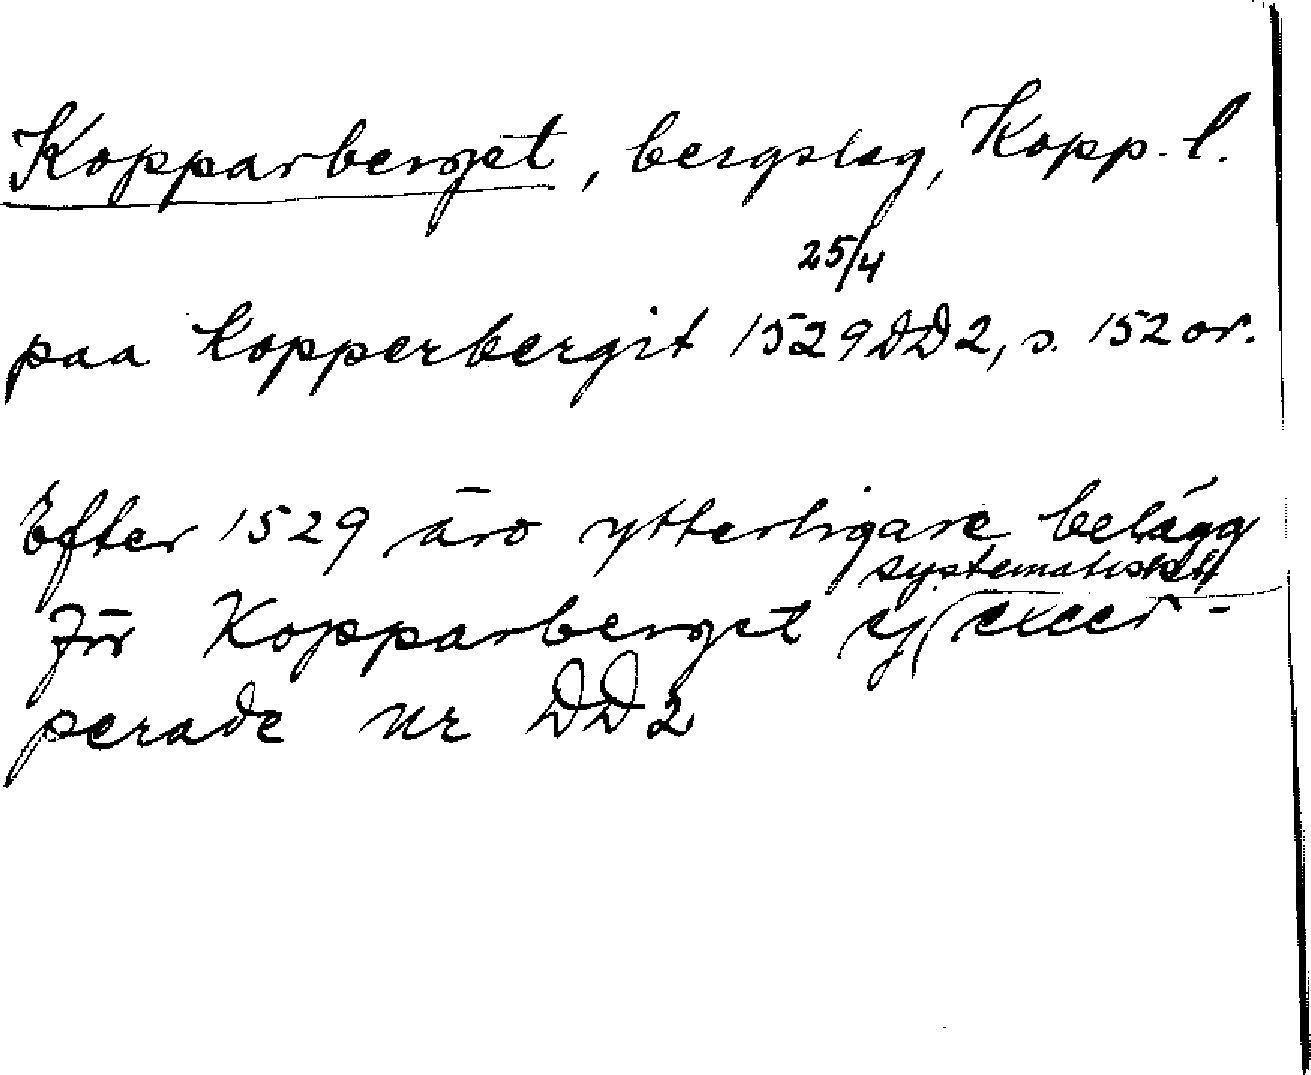 Kopparberget, bergslag, Kopp. l.
25/4
paa Kopperbergit 1529 DD2, s. 152 or.
Efter 1529 äro ytterligare belägg
systematiskt
för Kopparberget ej excer-
perade ur DD2